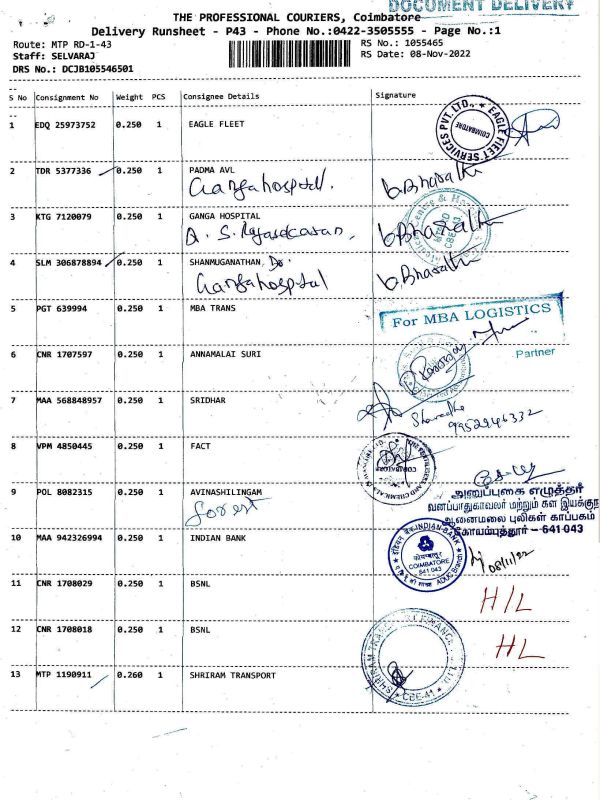 DOCUMENT DELIVERY
THE PROFESSIONAL COURIERS, Coimbatore
Delivery Runsheet - P43 - Phone No.:0422-3505555 - Page No.:1
Route: MTP RD-1-43 RS No.: 1055465
Staff: SELVARAJ RS Date: 08-Nov-2022
DRS No.: DCJB105546501
S No Consignment No Weight PCS Consignee Details Signature
1 EDQ 25973752 0.250 1 EAGLE FLEET
EAGLE FLEET SERVICES PVT. LTD., COIMBATORE
2 TDR 5377336 0.250 1 PADMA AVL
Ganga hospital. b.Bharathi
3 KTG 7120079 0.250 1 GANGA HOSPITAL
b.Bharathi
4 SLM 306878894 0.250 1 SHANMUGANATHAN, Dr.
Ganga hospital b.Bharathi
5 PGT 639994 0.250 1 MBA TRANS
For MBA LOGISTICS
Partner
6 CNR 1707597 0.250 1 ANNAMALAI SURI
7 MAA 568848957 0.250 1 SRIDHAR
9952946332
8 VPM 4850445 0.250 1 FACT
9 POL 8082315 0.250 1 AVINASHILINGAM
forest
அலுப்புகை எழுத்தர்
வனப்பாதுகாவலர் மற்றும் கள இயக்குந
ஆனைமலை புலிகள் காப்பகம்
கோயம்புத்தூர் - 641 043
10 MAA 942326994 0.250 1 INDIAN BANK
INDIAN BANK COIMBATORE 641 043 ADUC Branch
08/11/22
11 CNR 1708029 0.250 1 BSNL
H/L
12 CNR 1708018 0.250 1 BSNL
HL
13 MTP 1190911 0.260 1 SHRIRAM TRANSPORT
SHRIRAM TRANSPORT FINANCE CBE-41